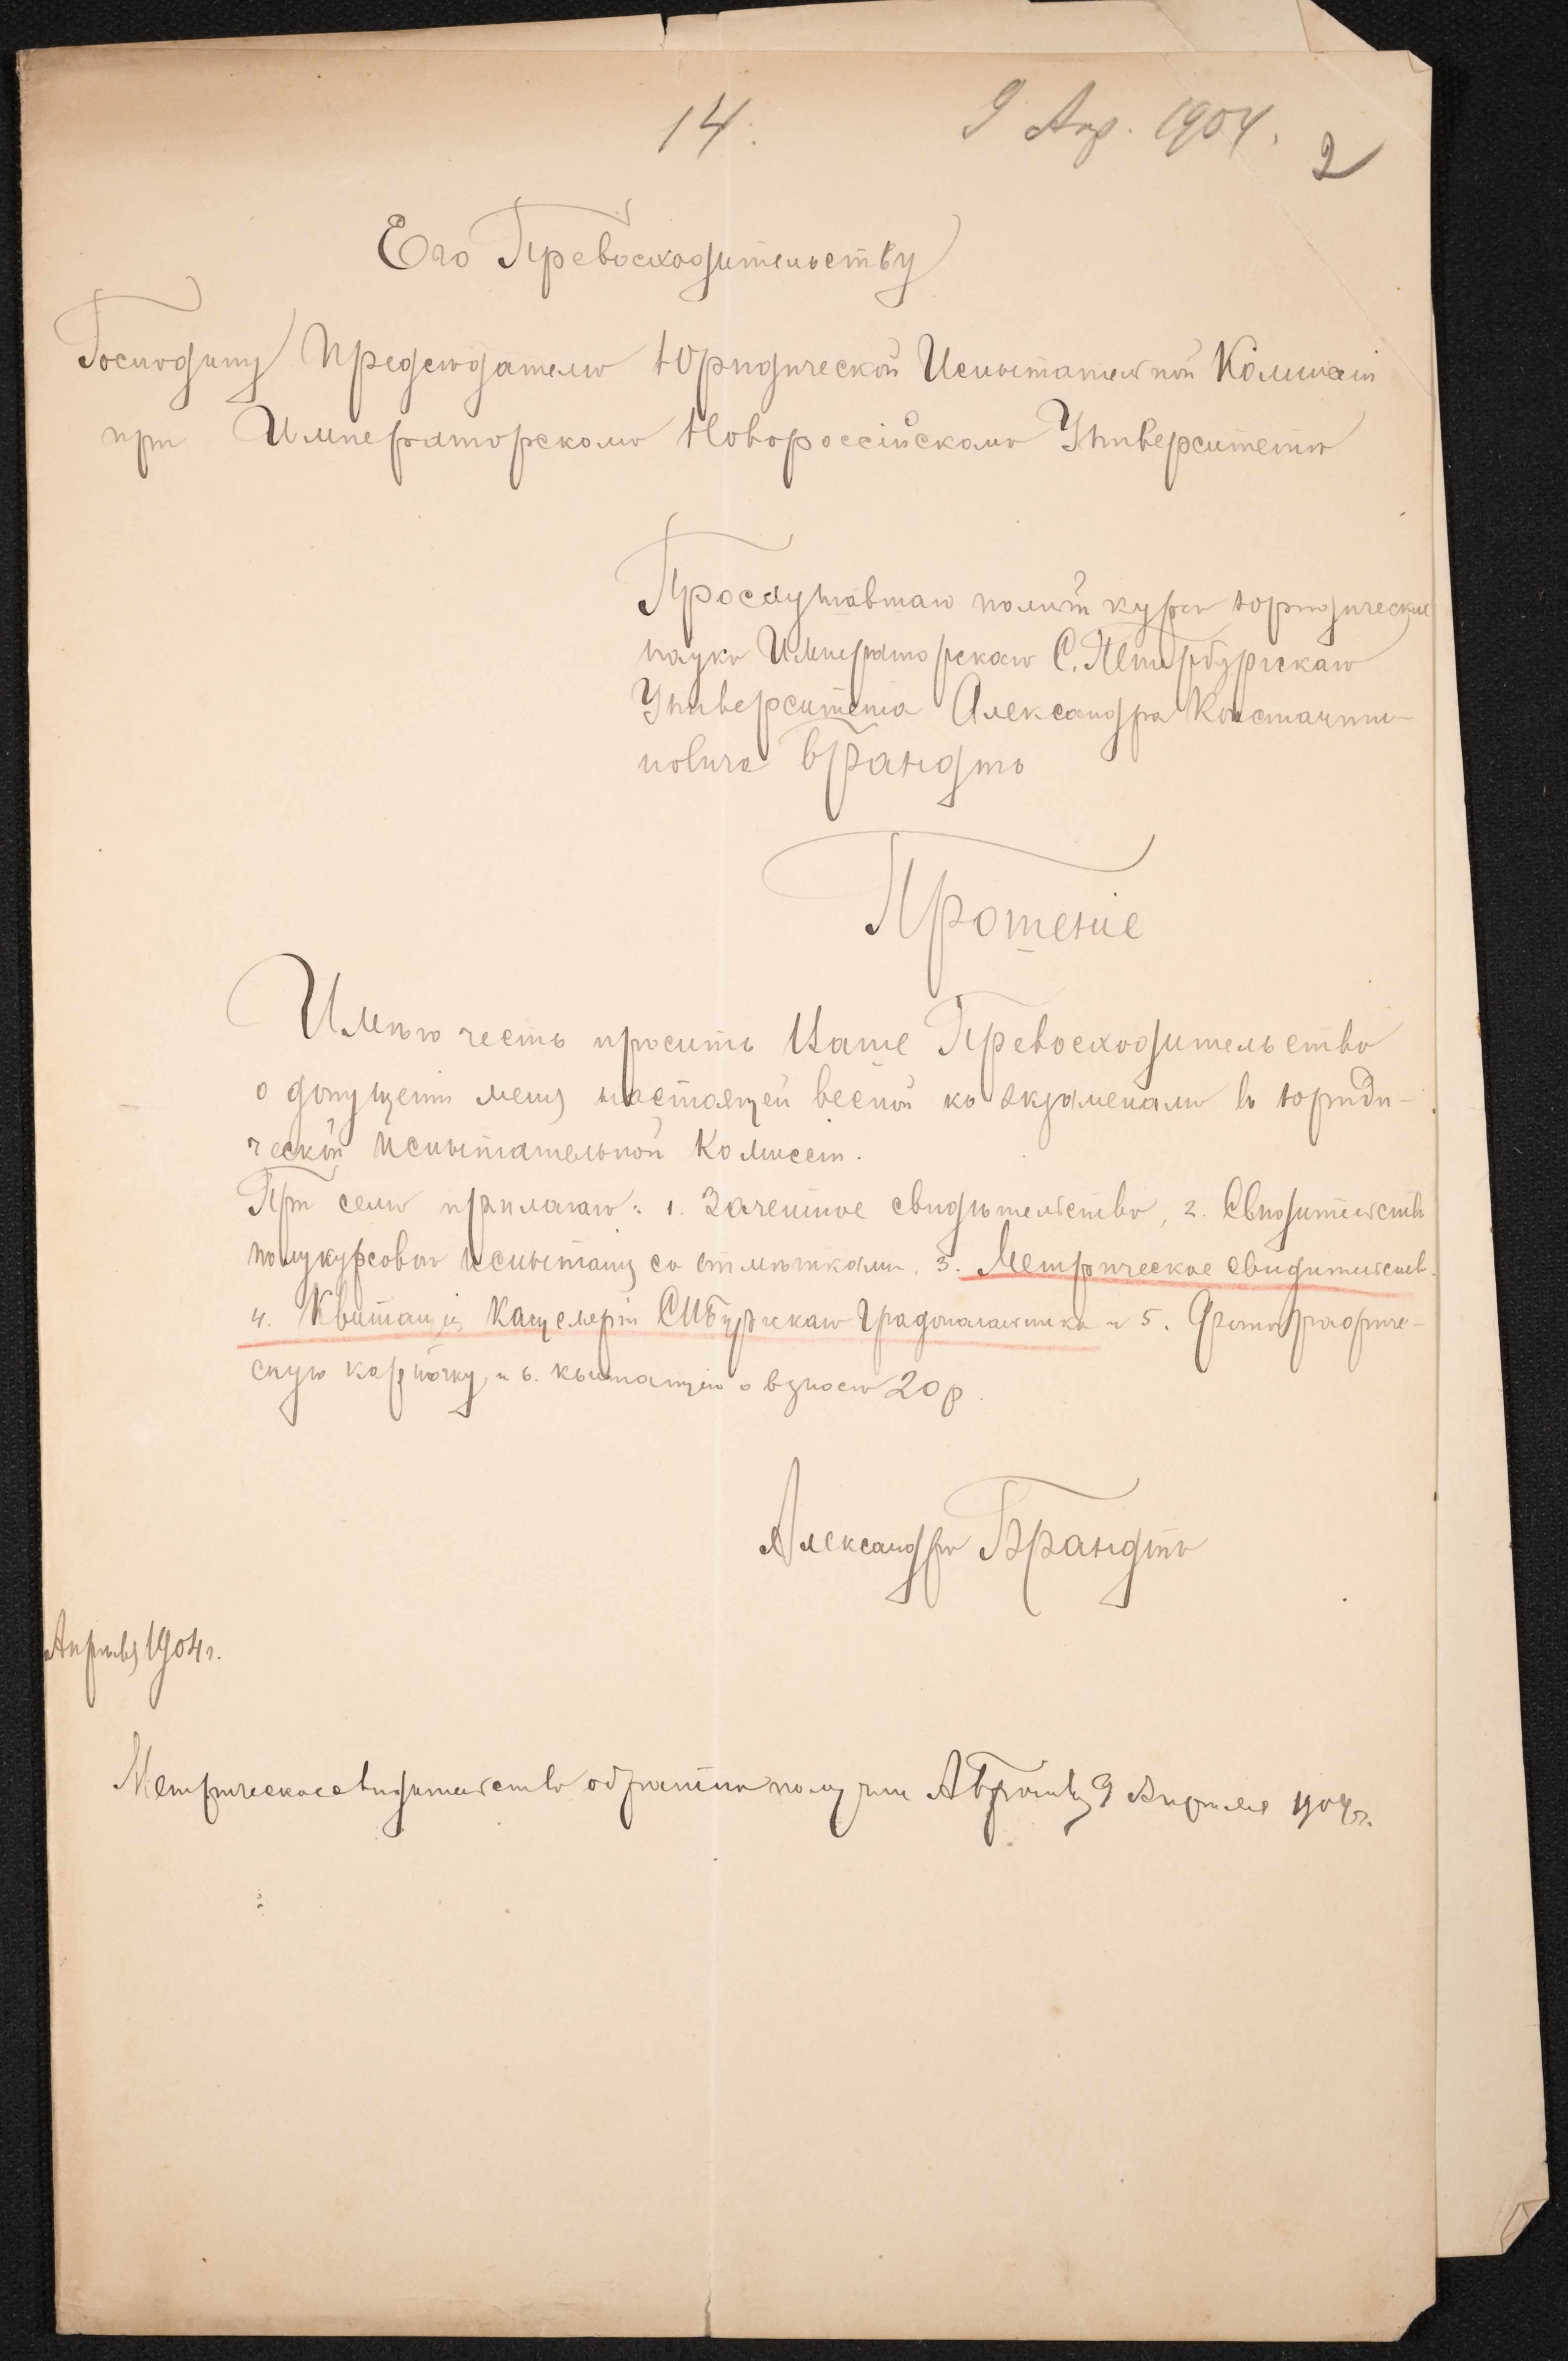 14. 9 Апр. 1904.
2
Его Превосходительству
Господину Предсѣдателю Юридической Испытательной Комиссіи
при Императорскомъ Новороссійскомъ Университетѣ
Прослушавшаго полный курсъ юридическихъ
наукъ Императорскаго С. Петербургскаго
Университета Александра Константи-
новича Брандтъ
Прошеніе
Имѣю честь просить Ваше Превосходительство
о допущеніи меня настоящей весной къ экзаменамъ въ юриди-
ческой Испытательной Комиссіи.
При семъ прилагаю: 1. Зачетное свидѣтельство, 2. Свидѣтельство
полукурсовыхъ испытаній съ отмѣтками. 3. Метрическое свидѣтельств.
4. Квитанція Канцеляріи СПБургскаго Градоначальника и 5. Фотографиче-
скую карточку, и 6. квитанцію о взносѣ 20 р.
Александръ Брандтъ
Апрѣля 1904 г.
Метрическое свидѣтельство обратно получилъ А Брандтъ 9 Апрѣля 1904 г.